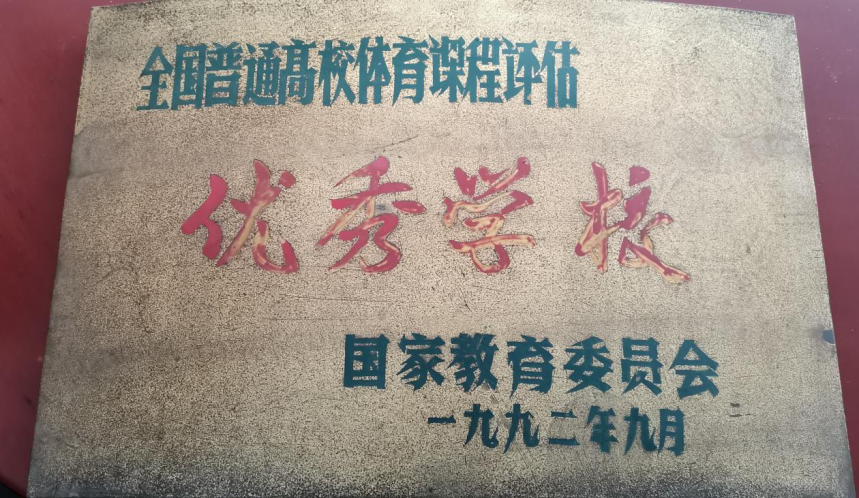 全国普通高校体育课程评估
优秀学校
国家教育委员会
一九九二年九月